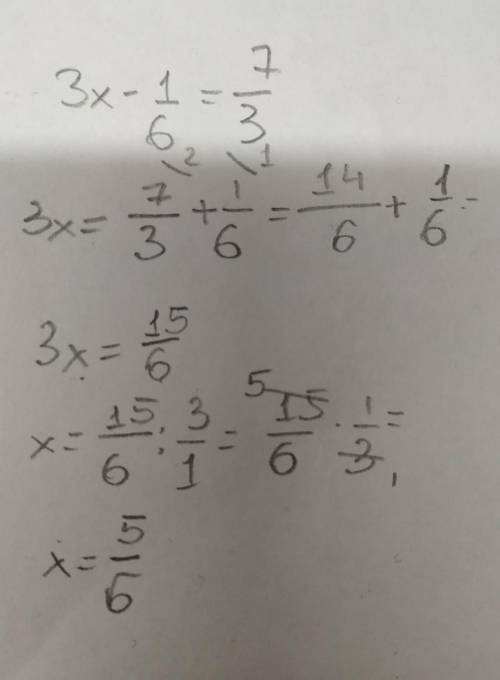 3x - 1/6 = 7/3
3x = 7/3 \2 + 1/6 \1 = 14/6 + 1/6 =
3x = 15/6
x = 15/6 : 3/1 = 15/6 5 · 1/3 1 =
x = 5/6